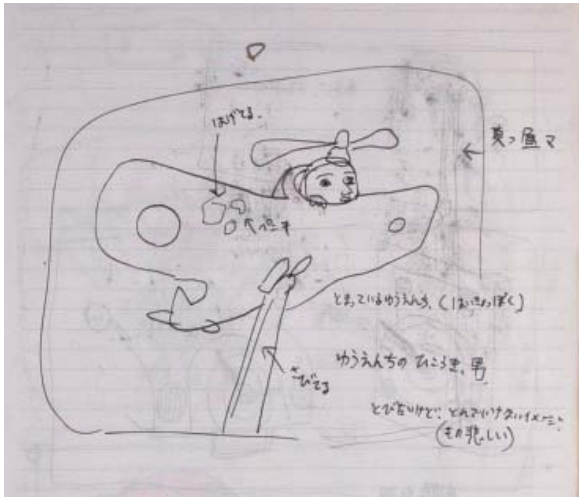 はげてる.
真っ昼マ
ペンキ
とまっているゆうえんち.(はいきょっぽく)
さびてる
ゆうえんちの ひこうき. 男.
とびたいけど. とんでいけないイメージ.
(もの悲しい)